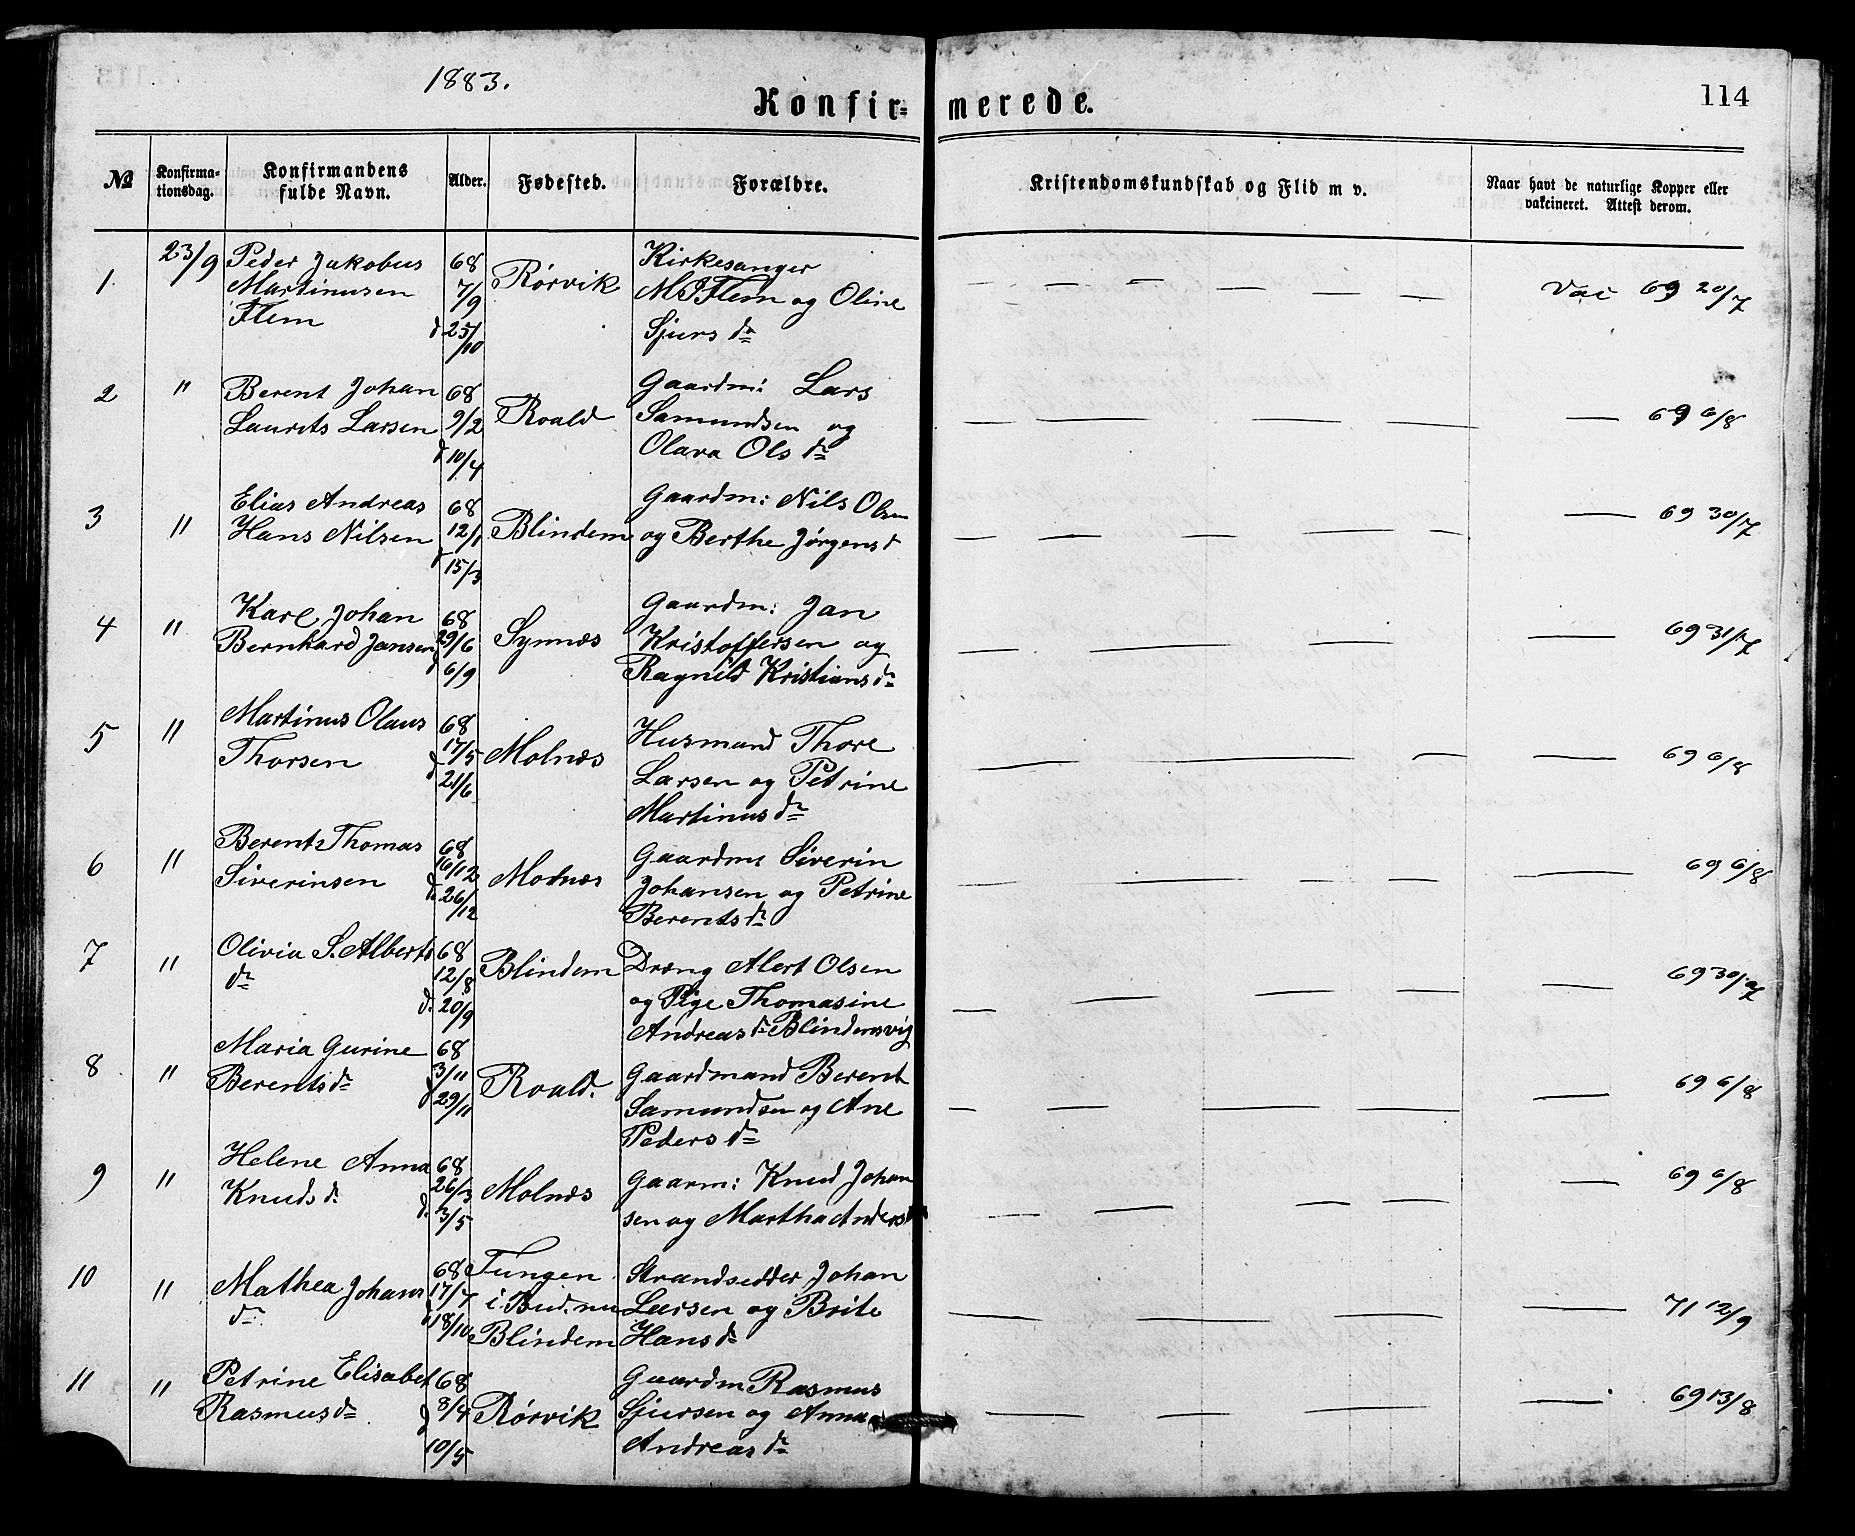 1883.
Konfir= merede.
114
№
Konfirma=
tionsdag.
Konfirmandens
fulde Navn.
Alder.
Fødested.
Forældre.
Kristendomskundskab og Flid m v.
Naar havt de naturlige Kopper eller
vakcineret. Attest derom.
1. 23/9 Peder Jakobus 68 Rørvik Kirkesanger
Martinusen 7/9 M J Flem og Oline
Flem d 25/10 Sjurs dr
— — — — — — Vac 69 20/7
2 " Berent Johan 68 Roald Gaardm: Lars
Laurits Larsen 9/2 Samundsen og
d 10/4 Olava Ols dr
— — — — — 69 6/8
3 " Elias Andreas 68 Blindem Gaardm: Nils Olsen
Hans Nilsen 12/1 og Berthe Jørgens d
d 15/3
— — — — — — — 69 30/7
4 " Karl Johan 68 Synnæs Gaardm: Jan
Bernhard Jansen 29/6 Kristoffersen og
d 6/9 Ragnild Kristians dr
— — — — — 69 31/7
5 " Martinus Olaus 68 Molnæs Husmand Thore
Thorsen 17/5 Larsen og Petrine
d 21/6 Martinus dr
— — — — — 69 6/8
6 " Berent Thomas 68 Molnæs Gaardm: Siverin
Siverinsen 16/12 Johansen og Petrine
d. 26/12 Berents dr
— — — — — 69 6/8
7 " Olivia S. Alberts 68 Blindem Dræng Alert Olsen
dr 12/8 og Pige Thomasine
d. 20/9 Andreas dr Blindemsvig
— — — — — 69 30/7
8 " Maria Gurine 68 Roald. Gaardmand Berent
Berents dr 3/11 Samundsen og Ane
d 29/11 Peders dr
— — — — — 69 6/8
9 " Helene Anna 68 Molnæs Gaarm: Knud Johan
Knuds d. 26/3 sen og Martha Anders
d. 3/5
— — — — — 69 6/8
10 " Mathea Johans 68 Tungen Strandsidder Johan
dr. 17/7 i Bud. nu Larsen og Brite
d 18/10 Blindem Hans dr
— — — — — 71 12/9
11 " Petrine Elisabet 68 Rørvik Gaardm Rasmus
Rasmus dr 8/4 Sjursen og Anna
d 10/5 Andreas dr
— — — — — 69 13/8